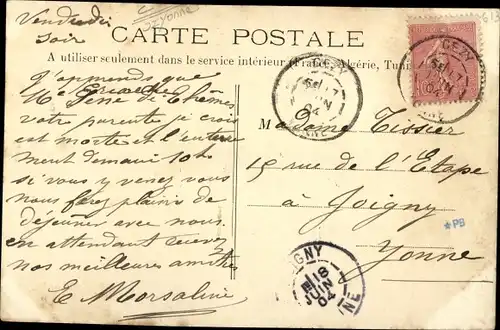 Yonne
Vendredi
soir
CARTE POSTALE
A utiliser seulement dans le service intérieur (France, Algérie, Tunis
J'apprends que
Mr
votre parente je crois
est morte et l'enterre
ment demain 10h
si vous y venez vous
nous ferez plaisir de
déjeuner avec nous
en attendant recevez
nos meilleures amitiés
E Morsaline
CEZY
17
JUIN
04
YONNE
CEZY
17
JUIN
04
YONNE
Madame Tissier
15 rue de l'Etape
à Joigny
Yonne
*PB
IGNY
18
JUIN
04
NE